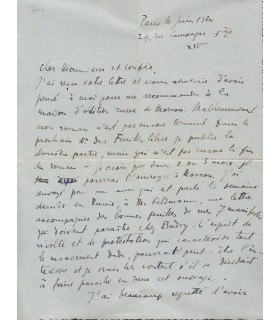 Paris 16 juin 1924
29, rue Campagne-1ère
XIV
Cher Monsieur et confrère,
J'ai reçu votre lettre et vous remercie d'avoir
pensé à moi pour me recommander à la
maison d'édition russe de Moscou. Malheureusement
mon roman n'est pas encore terminé. Dans le
prochain No des Feuilles libres je publie la
dernière partie, mais qui n'est pas encore la fin
du roman - je crois que dans 2 ou 3 mois je
pourrai l'envoyer à Moscou. J'ai
envoyé par un ami qui est parti la semaine
dernière en Russie, à Mr Feldmann, une lettre
accompagnée des bonnes feuilles de mes 7 manifestes
qui doivent paraître chez Budry. L'esprit de
révolte et de protestation qui caractérise tout
le mouvement Dada, pourrait peut-être l'in-
téresser et je serais très content s'il se décidait
à faire paraître en russe cet ouvrage.
J'ai beaucoup regretté d'avoir